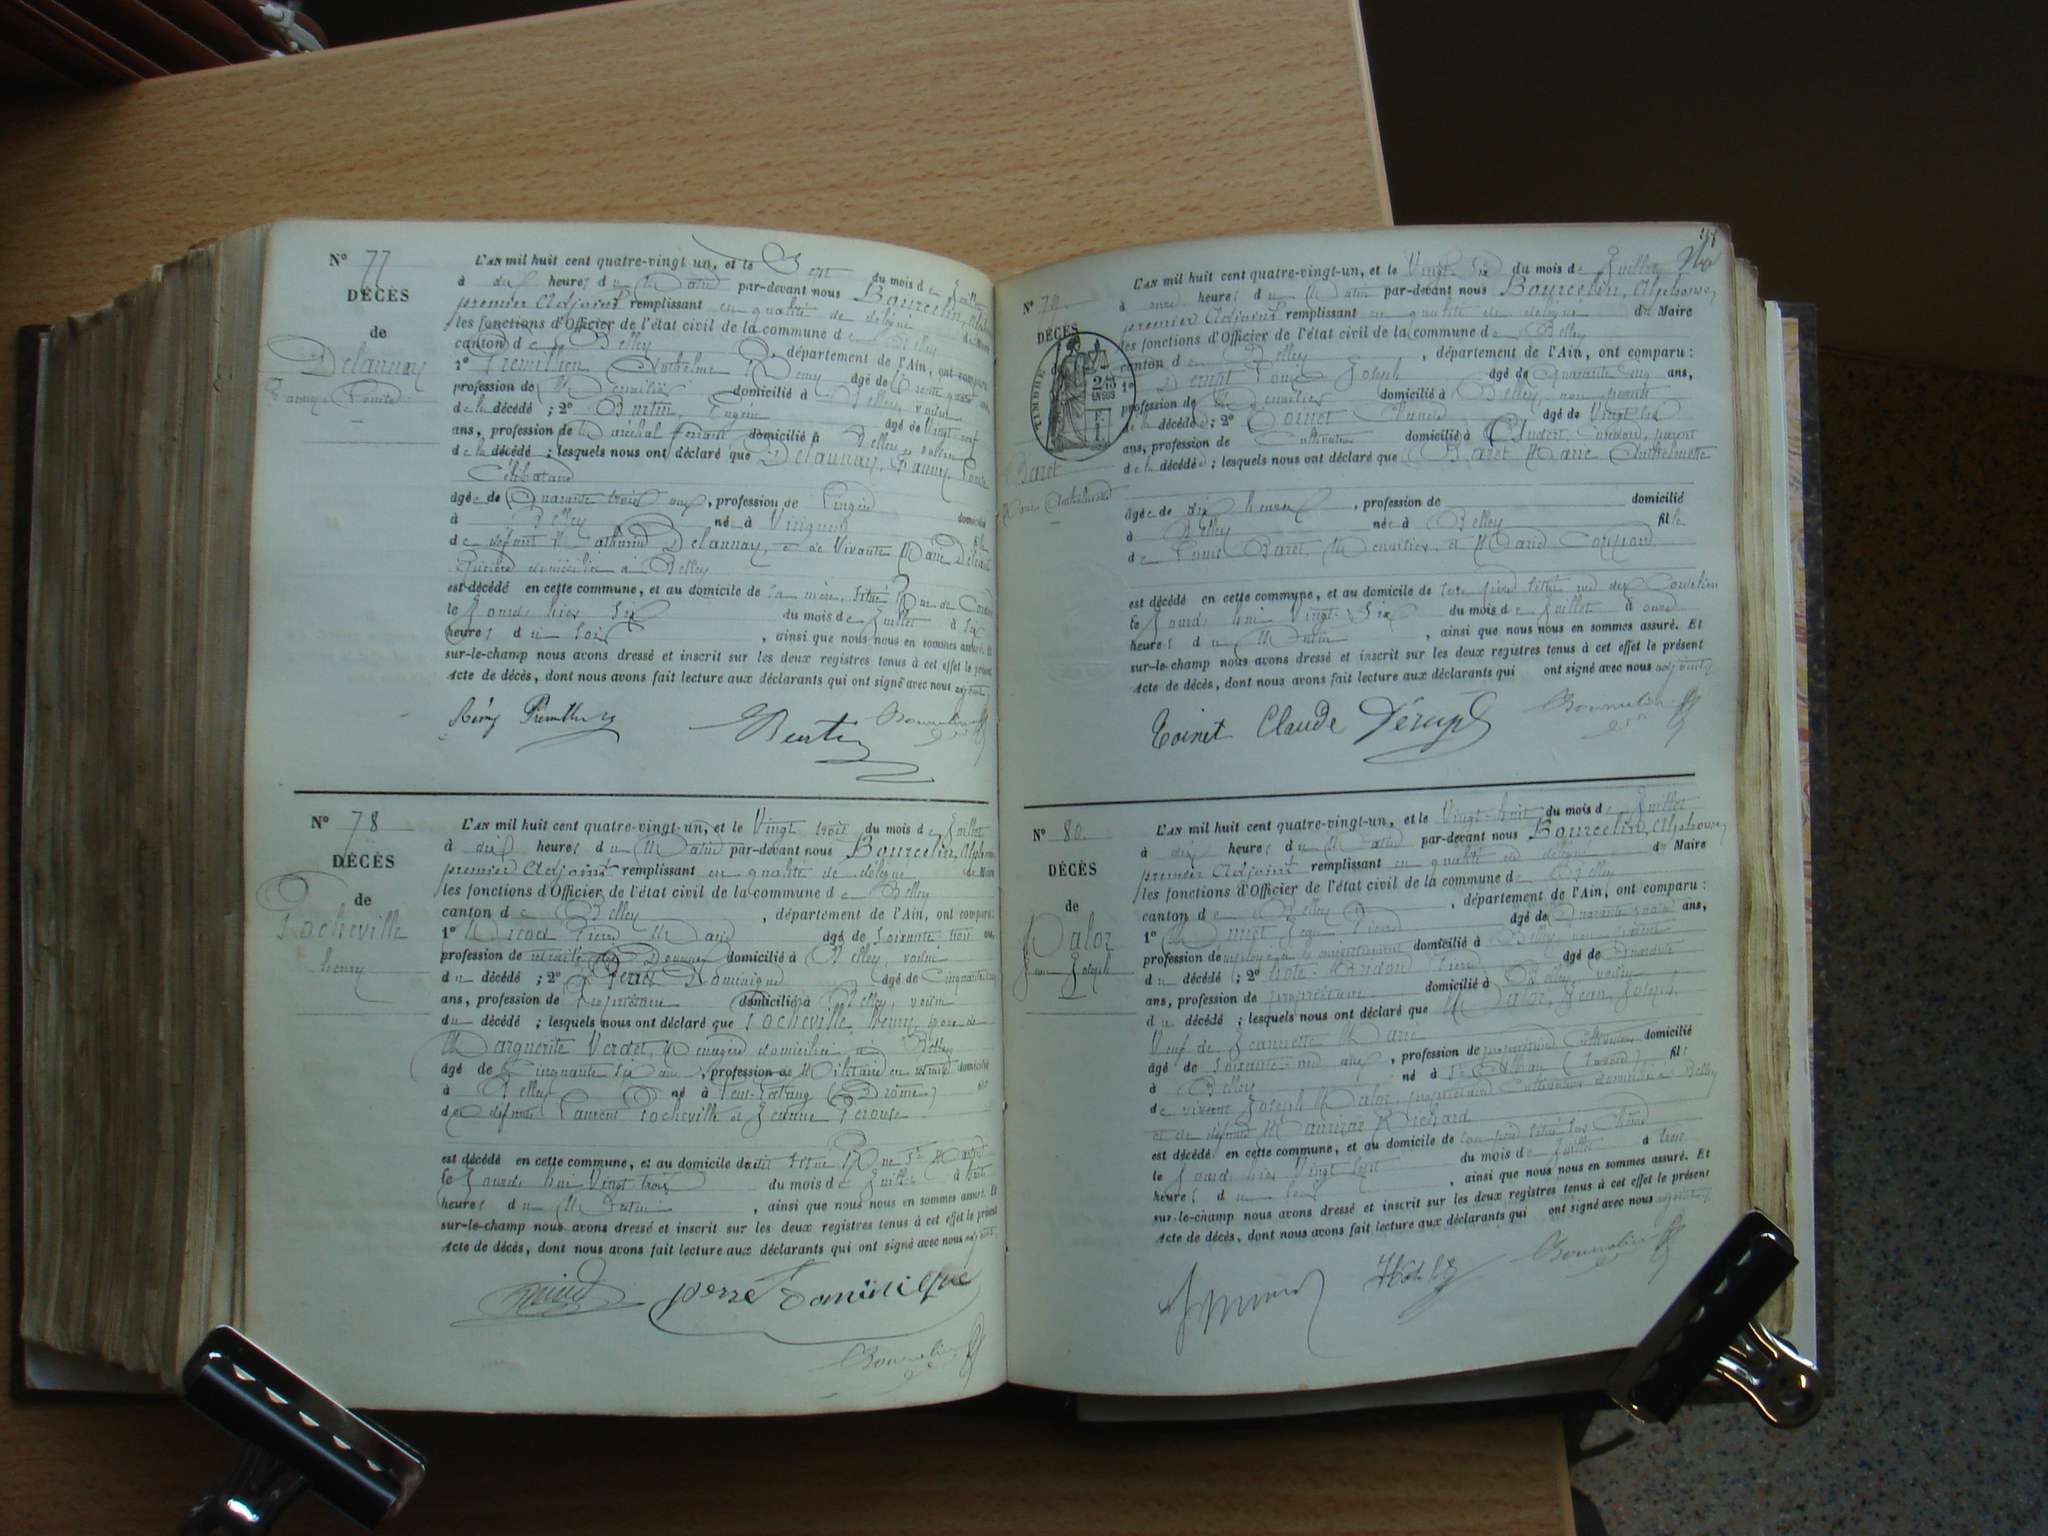 N° 77
DÉCÈS
de
Delaunay
Fanny Louise
L'AN mil huit cent quatre-vingt un, et le Sept du mois de Juillet
à dix heures du Matin par-devant nous Bourcelin,
premier Adjoint remplissant en qualité de délégué du Maire
les fonctions d'Officier de l'état civil de la commune de Belley
canton de Belley, département de l'Ain, ont comparu:
1° Anthelme Remy âgé de trente quatre ans,
profession de Menuisier domicilié à Belley, voisin
de la décédé; 2° Eugène âgé de Vingt neuf
ans, profession de Maréchal ferrant domicilié à Belley, voisin
de la décédé; lesquels nous ont déclaré que Delaunay, Fanny, Louise
Célibataire
âgée de Quarante trois ans, profession de Lingère domicilié
à Belley née à Virignin fille
de défunt Mathurin Delaunay, et de Vivante Marie
domiciliée à Belley
est décédé en cette commune, et au domicile de sa mère, situé Rue de
le Jourd. hier Six du mois de Juillet à six
heures du soir, ainsi que nous nous en sommes assuré. Et
sur-le-champ nous avons dressé et inscrit sur les deux registres tenus à cet effet le présent
Acte de décès, dont nous avons fait lecture aux déclarants qui ont signé avec nous adjoint
N° 78
DÉCÈS
de
Pocheville
henry
L'AN mil huit cent quatre-vingt-un, et le Vingt trois du mois de Juillet
à dix heures du Matin par-devant nous Bourcelin,
premier Adjoint remplissant en qualité de délégué du Maire
les fonctions d'Officier de l'état civil de la commune de Belley
canton de Belley, département de l'Ain, ont comparu:
1° Pierre Marie âgé de soixante trois ans,
profession de retraité des Douanes domicilié à Belley, voisin
du décédé; 2° Perret Dominique âgé de Cinquante
ans, profession de Propriétaire domicilié à Belley, voisin
du décédé; lesquels nous ont déclaré que Pocheville, Henry, époux de
Marguerite Verdet, Ménagère domiciliée à Belley
âgé de Cinquante six ans, profession de Militaire en retraite domicilié
à Belley né à (Drôme) fils
de défunts Laurent Pocheville et Jeanne Perouse
est décédé en cette commune, et au domicile situé Rue St
le Jourd. hui Vingt trois du mois de Juillet à huit
heures du Matin, ainsi que nous nous en sommes assuré. Et
sur-le-champ nous avons dressé et inscrit sur les deux registres tenus à cet effet le présent
Acte de décès, dont nous avons fait lecture aux déclarants qui ont signé avec nous adjoint
perret Dominique
N° 79
DÉCÈS
TIMBRE
Baret
Marie Anthelmette
L'AN mil huit cent quatre-vingt-un, et le Vingt-six du mois de Juillet
à onze heures du Matin par-devant nous Bourcelin, Alphonse,
premier Adjoint remplissant en qualité de délégué du Maire
les fonctions d'Officier de l'état civil de la commune de Belley
canton de Belley, département de l'Ain, ont comparu:
1° Louis Joseph âgé de Quarante cinq ans,
profession de Menuisier domicilié à Belley, non parent
de la décédé; 2° Toinet Claude âgé de Vingt six
ans, profession de Cultivateur domicilié à parent
de la décédé; lesquels nous ont déclaré que Baret Marie Anthelmette
âgée de six heures, profession de domicilié
à Belley née à Belley fille
de Louis Baret, Menuisier, et Marie
est décédé en cette commune, et au domicile de son père situé rue des
le Jourd. hui Vingt-Six du mois de Juillet à onze
heures du Matin, ainsi que nous nous en sommes assuré. Et
sur-le-champ nous avons dressé et inscrit sur les deux registres tenus à cet effet le présent
Acte de décès, dont nous avons fait lecture aux déclarants qui ont signé avec nous adjoint
Toinet Claude
N° 80
DÉCÈS
de
Jean Joseph
L'AN mil huit cent quatre-vingt-un, et le Vingt-huit du mois de Juillet
à dix heures du Matin par-devant nous Bourcelin, Alphonse,
premier Adjoint remplissant en qualité de délégué du Maire
les fonctions d'Officier de l'état civil de la commune de Belley
canton de Belley, département de l'Ain, ont comparu:
1° Jean Pierre âgé de Quarante ans,
profession de employé domicilié à Belley, non parent
du décédé; 2° âgé de Quarante
ans, profession de propriétaire domicilié à Belley, voisin
du décédé; lesquels nous ont déclaré que Jean, Joseph,
Veuf de Jeannette Marie
âgé de soixante ans, profession de propriétaire Cultivateur domicilié
à Belley né à St Alban (Savoie) fils
de vivant Joseph propriétaire Cultivateur domicilié à Belley
et de défunte Richard
est décédé en cette commune, et au domicile de son père situé
le Jourd. hier Vingt Sept du mois de Juillet à trois
heures du soir, ainsi que nous nous en sommes assuré. Et
sur-le-champ nous avons dressé et inscrit sur les deux registres tenus à cet effet le présent
Acte de décès, dont nous avons fait lecture aux déclarants qui ont signé avec nous adjoint